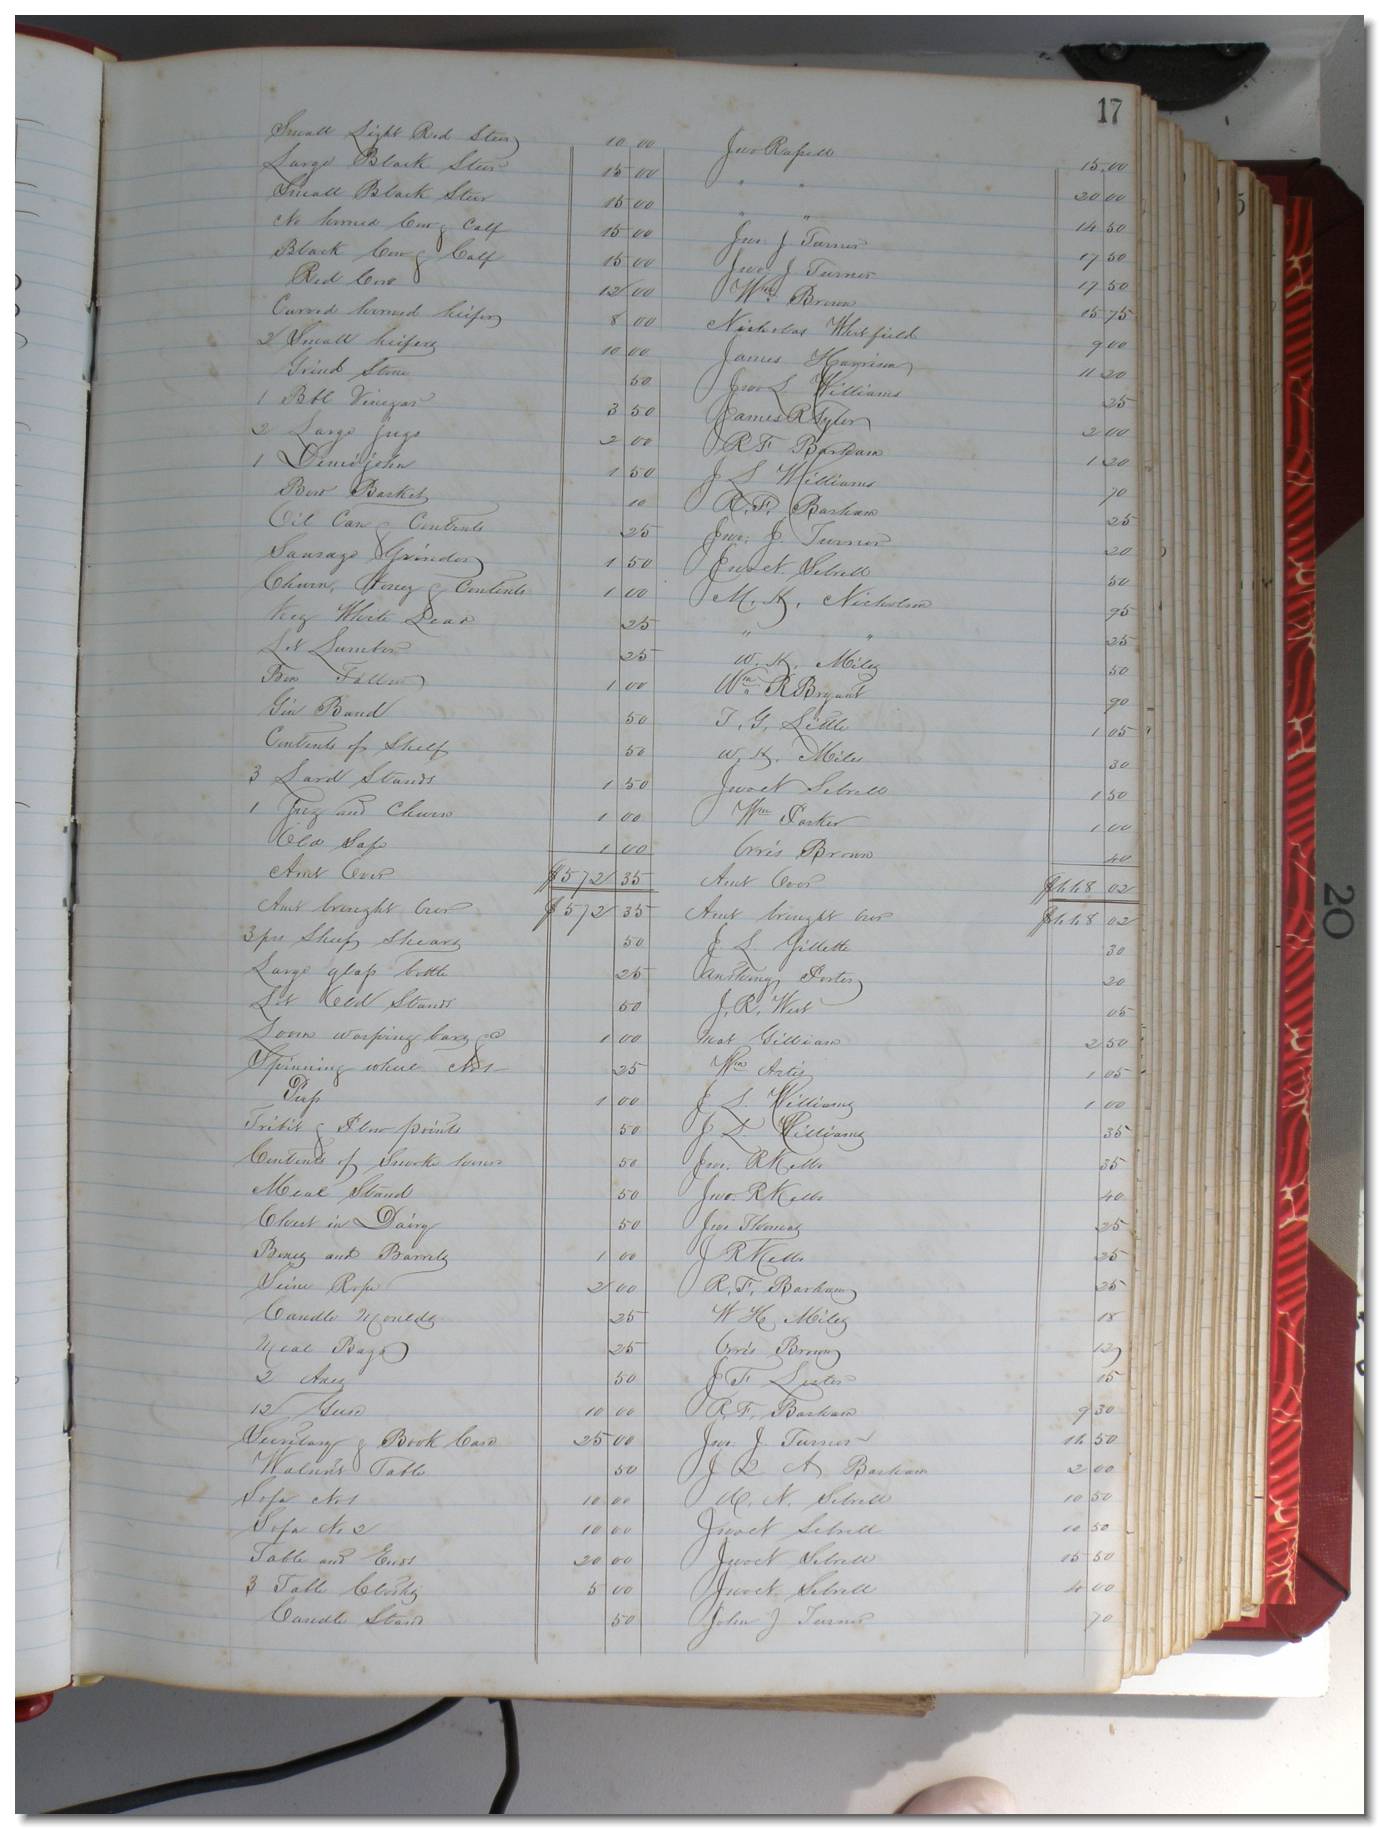 17
Small Light Red Steer 10 00 Jno Russell 15 00
Large Black Steer 15 00 " " 20 00
Small Black Steer 15 00 " " 14 50
No horned Cow & Calf 15 00 Jno. J Turner 17 50
Black Cow & Calf 15 00 Jno J Turner 17 50
Red Cow 12 00 Wm Brown 15 75
Curved horned heifer 8 00 Nicholas Whitfield 9 00
2 Small heifers 10 00 James Harrison 11 20
Grind Stone 50 Jno L Williams 25
1 Bbl Vinegar 3 50 James R Tyler 2 00
2 Large Jugs 2 00 R F Barham 1 20
1 Demijohn 1 50 J L Williams 70
Basket 10 R. F. Barham 25
Oil Can & Contents 25 Jno. J. Turner 20
Sausage Grinder 1 50 Jno N. Sebrell 50
Churn, & Contents 1 00 M. H. Nicholson 95
Keg White Lead 25 " " 25
Lot Lumber 25 W. H. Miles 50
Box Tallow 1 00 Wm R Bryant 90
Gin Band 50 T. G. Little 1 05
Contents of Shelf 50 W. H. Miles 30
3 Lard Stands 1 50 Jno N Sebrell 1 50
1 Jug and Churn 1 00 Wm Parker 1 00
Old 1 00 Orris Brown 40
Amt Over $572 35 Amt Over $668 02
Amt brought over $572 35 Amt brought over $668 02
3 prs Sheep Shears 50 J. L. Gillette 30
Large glass bottle 25 Anthony Porter 20
Lot Old Stands 50 J. R. West 05
Loom warping bars &c 1 00 Mat Gilliam 2 50
Spinning wheel No 1 25 Wm Artis 1 05
1 00 J. L. Williams 1 00
& Plow points 50 J. L. Williams 35
Contents of Smoke house 50 Jno. R Kello 35
Meal Stand 50 Jno R Kello 40
Chest in Dairy 50 Jno Thomas 25
Boxes and Barrels 1 00 J R Kello 25
Seine Rope 2 00 R. F. Barham 25
Candle Moulds 25 W H Miles 18
Meal Bags 25 Orris Brown 12
2 Axes 50 J F Lester 15
12 10 00 R. F. Barham 9 30
Secretary & Book Case 25 00 Jno. J Turner 16 50
Walnut Table 50 J Q A Barham 2 00
Sofa No 1 10 00 N. Sebrell 10 50
Sofa No 2 10 00 Jno N Sebrell 10 50
Table and Ends 20 00 Jno N Sebrell 15 50
3 Table Cloths 5 00 Jno N. Sebrell 4 00
Candle Stand 50 John J Turner 70
20